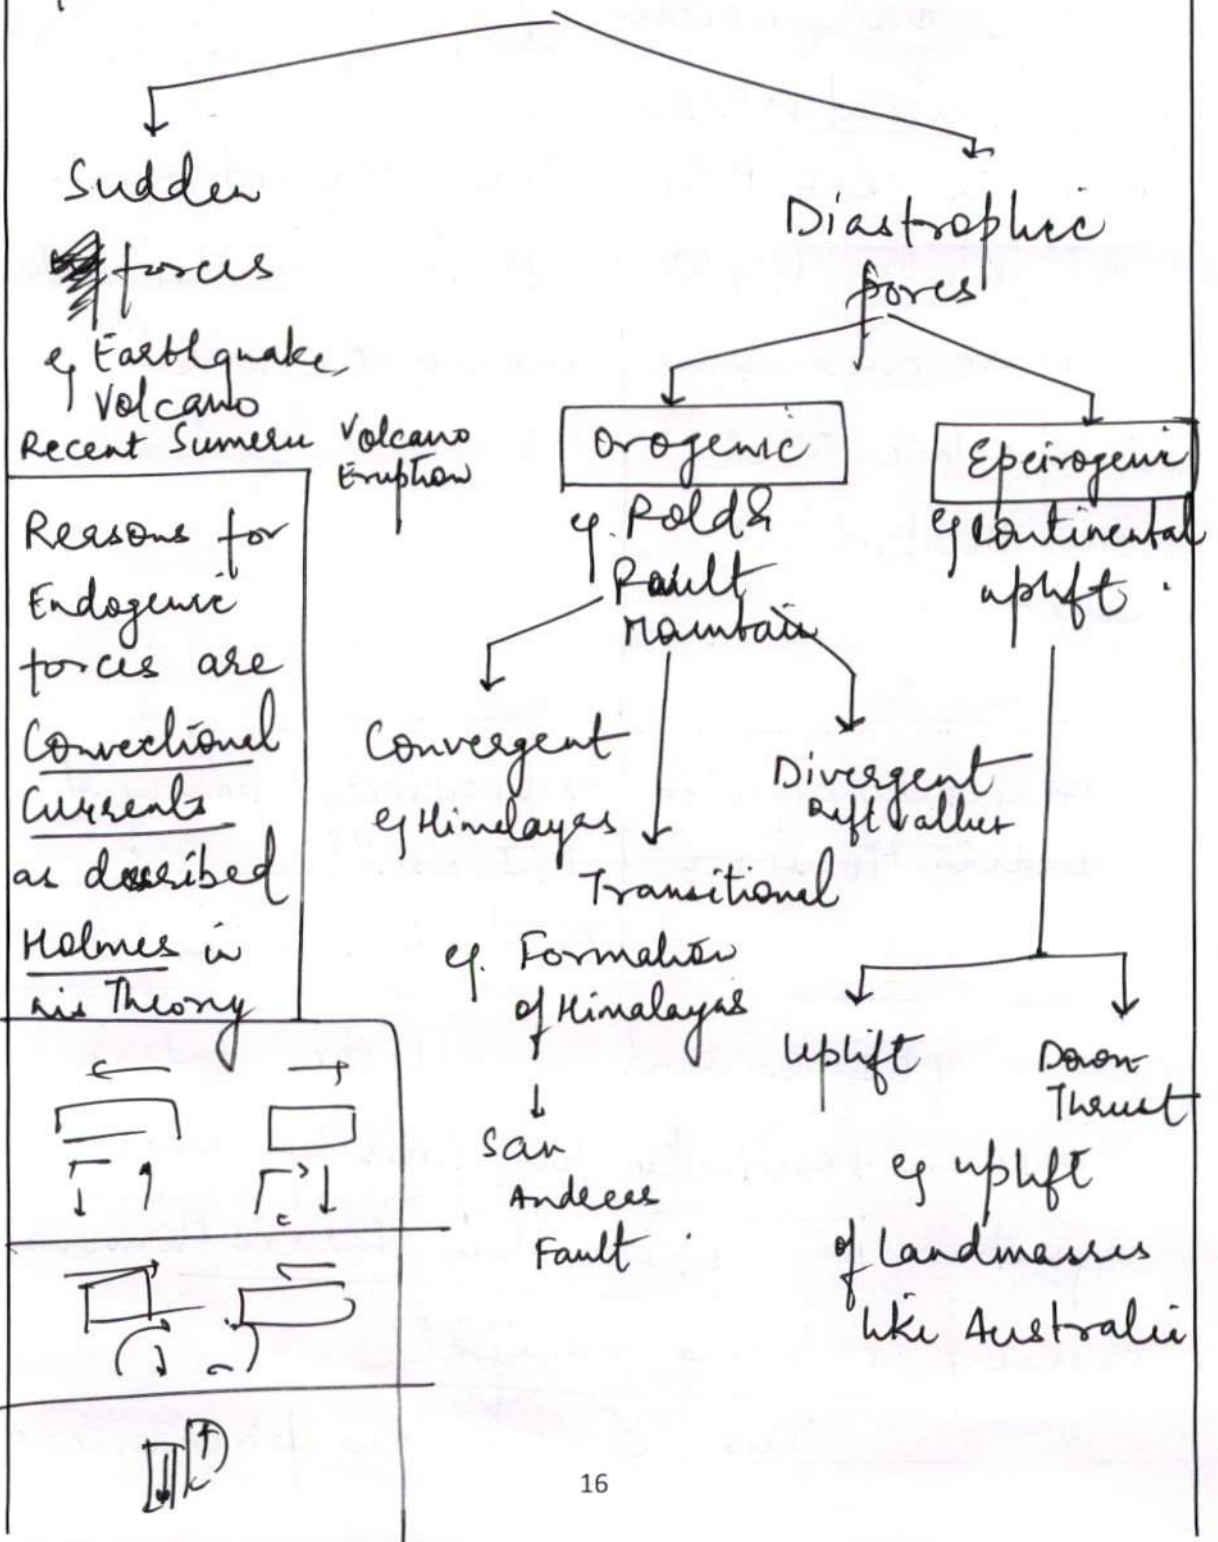 Sudden
forces
eg Earthquake,
Volcano
Recent Sumeru Volcano
Eruption
Reasons for
Endogenic
forces are
Convectional
Currents
as described
Holmes in
his Theory
Diastrophic
forces
Orogenic
eg. Fold &
Fault
Mountain
Convergent
eg Himalayas
Transitional
eg. Formation
of Himalayas
San
Andreas
Fault
Divergent
Rift Valley
Epeirogenic
eg continental
uplift.
Uplift
Down
Thrust
eg uplift
of Landmasses
like Australia
16